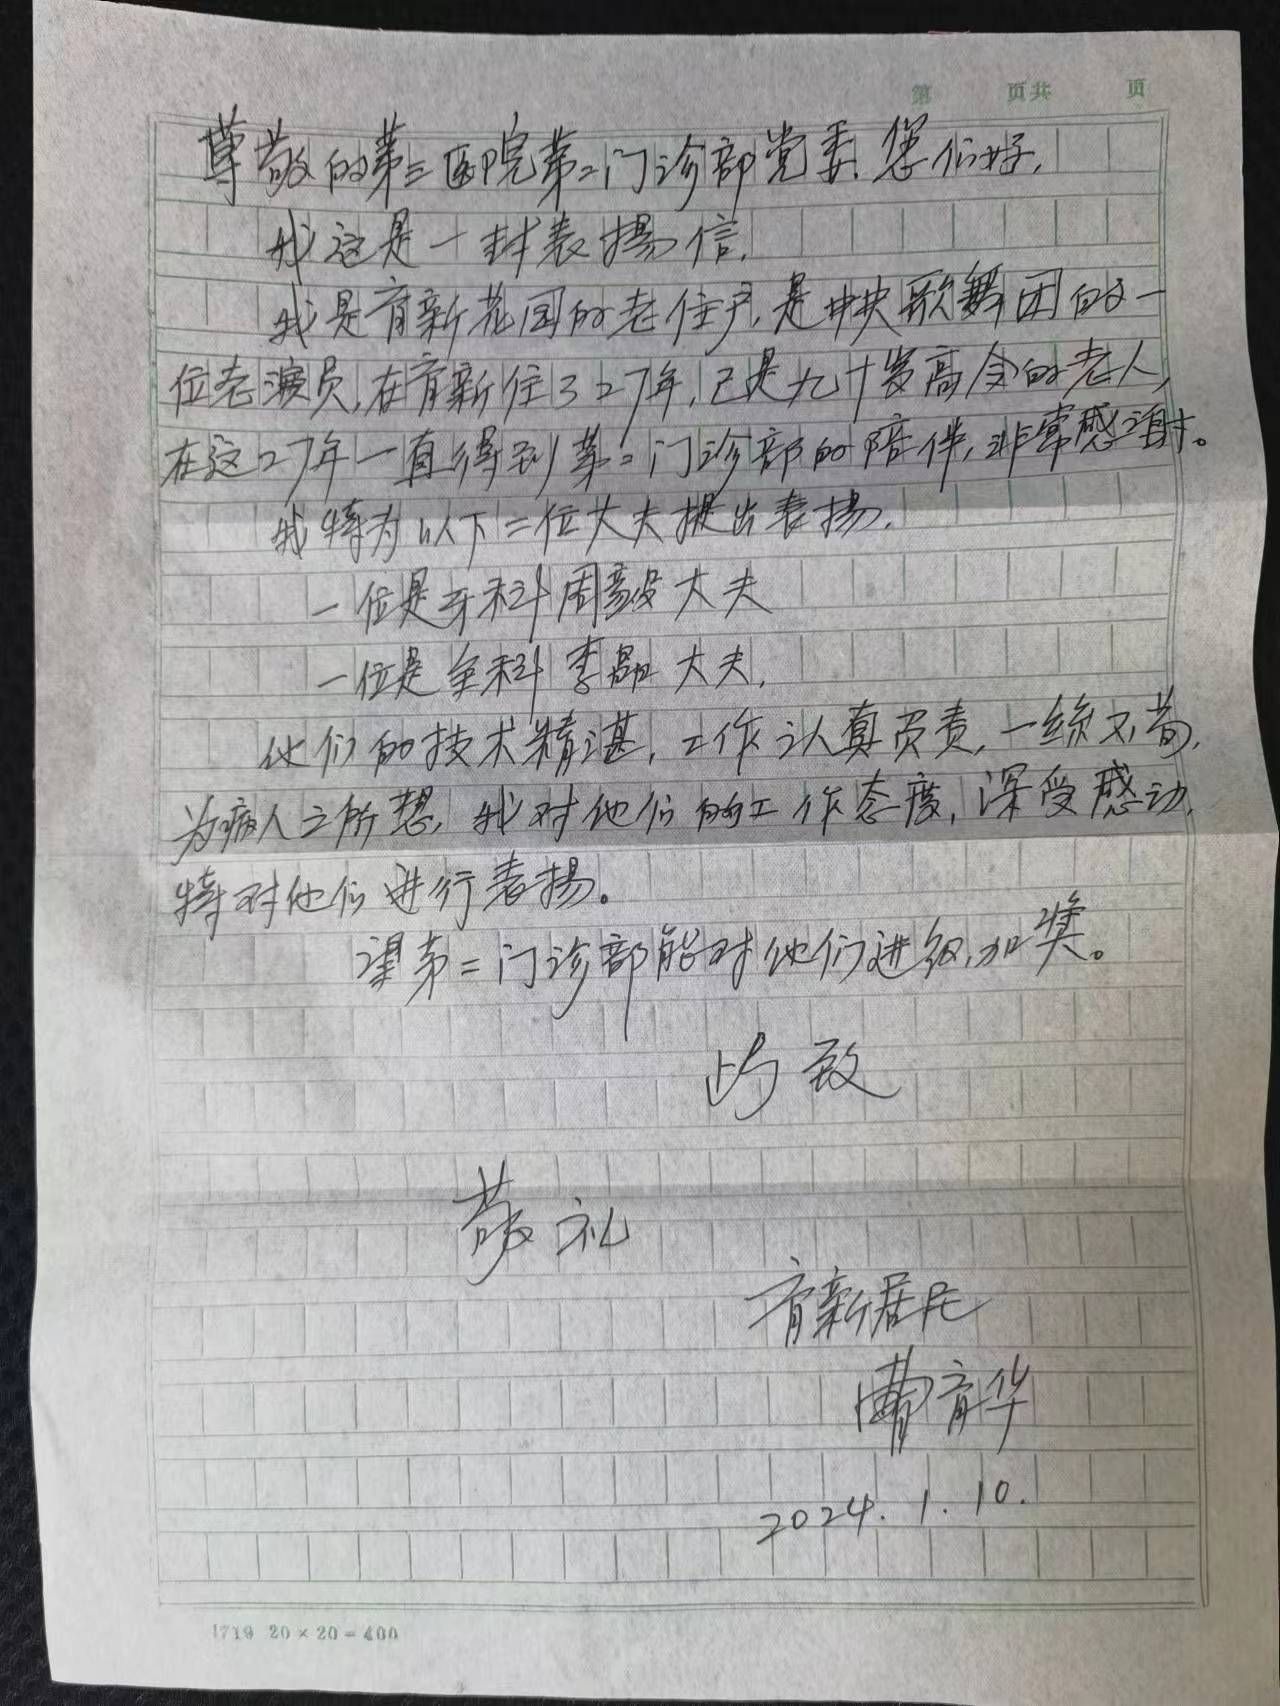 第 页共 页
尊敬的第三医院第二门诊部党委,您们好,
我这是一封表揚信,
我是育新花园的老住户,是中央歌舞团的一
位老演员,在育新住了27年,已是九十岁高令的老人,
在这27年一直得到第二门诊部的陪伴,非常感谢。
我特为以下二位大夫提出表揚,
一位是牙科周毅大夫
一位是全科李晶大夫,
他们的技术精湛,工作认真负责,一絲不苟,
为病人之所想,我对他们的工作态度,深受感动,
特对他们进行表揚。
望第二门诊部能对他们进级,加奖。
此致
敬礼
育新居民
曹育华
2024.1.10.
1719 20×20=400